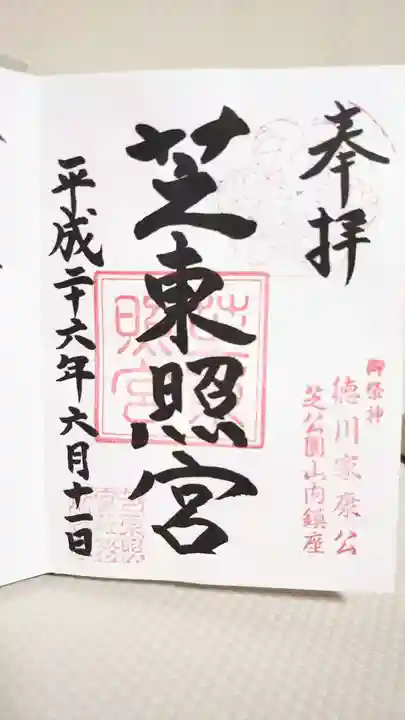 奉拝
御祭神
徳川家康公
芝公園山内鎮座
芝東照宮
平成二十六年六月十一日